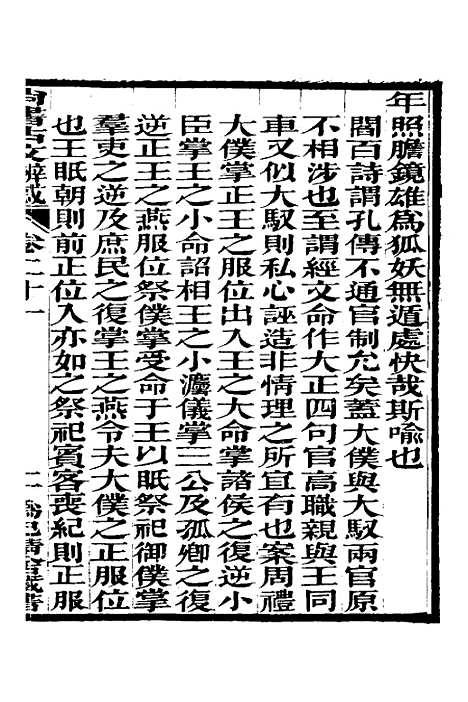 年照膽鏡雄為狐妖無遁處快哉斯喻也
閻百詩謂孔傳不通官制允矣蓋大僕與大馭兩官原
不相涉也至謂經文命作大正四句官高職親與王同
車又似大馭則私心誣造非情理之所宜有也案周禮
大僕掌正王之服位出入王之大命掌諸侯之復逆小
臣掌王之小命詔相王之小灋儀掌三公及孤卿之復
逆正王之燕服位祭僕掌受命于王以眡祭祀御僕掌
羣吏之逆及庶民之復掌王之燕令夫大僕之正服位
也王眡朝則前正位入亦如之祭祀賓客喪紀則正服
尚書古文辨惑 卷二十一 二